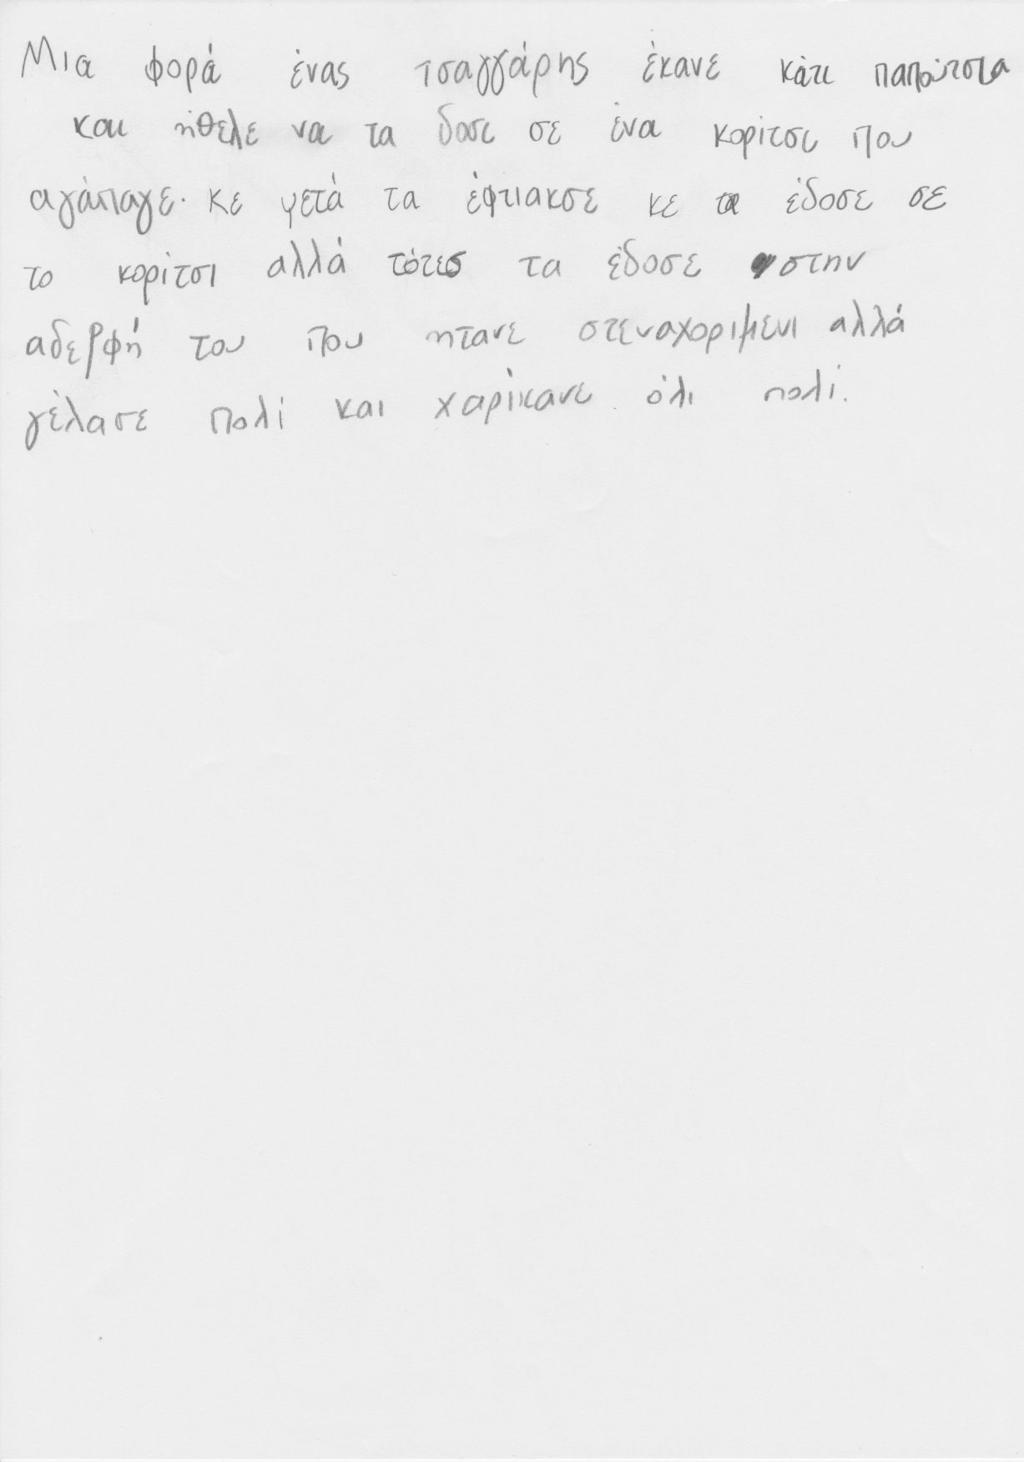 Μια φορά ένας τσαγγάρης έκανε κάτι παπούτσια
και ήθελε να τα δοσι σε ένα κορίτσι που
αγάπαγε. κε μετά τα έφτιακσε κε τα έδοσε σε
το κορίτσι αλλά τότες τα έδοσε στην
αδερφή του που ητανε στεναχοριμενι αλλά
γέλασε πολί και χαρίκανε όλι πολί.